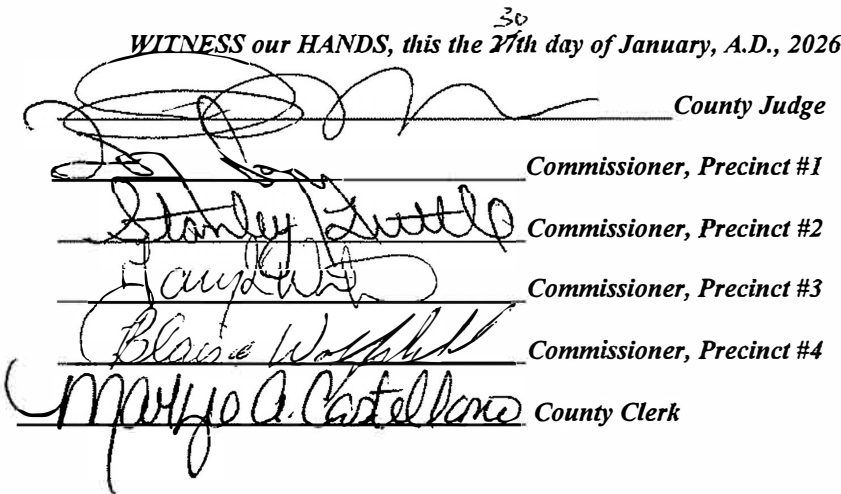 30
WITNESS our HANDS, this the 27th day of January, A.D., 2026
County Judge
Commissioner, Precinct #1
Stanley Tuttle Commissioner, Precinct #2
Commissioner, Precinct #3
Blaise Commissioner, Precinct #4
A. Castellano County Clerk